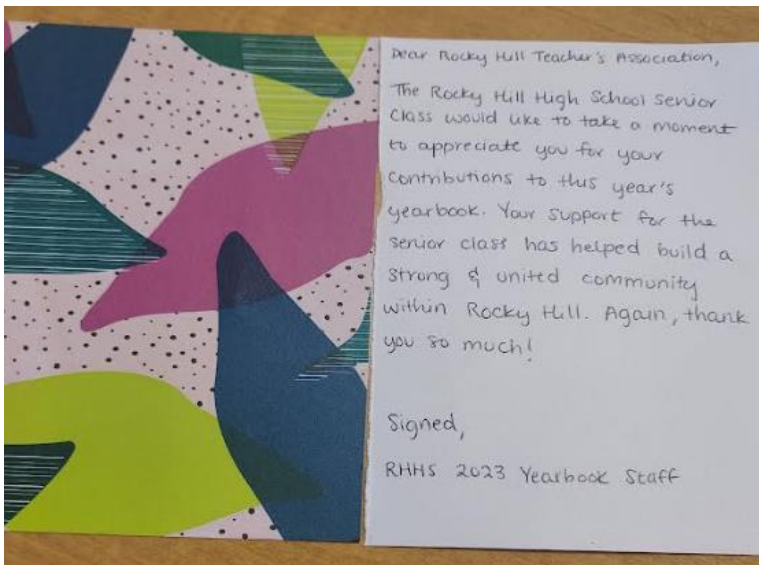 Dear Rocky Hill Teacher's Association,
The Rocky Hill High School Senior
Class would like to take a moment
to appreciate you for your
contributions to this year's
yearbook. Your support for the
senior class has helped build a
strong & united community
within Rocky Hill. Again, thank
you so much!
Signed,
RHHS 2023 Yearbook Staff